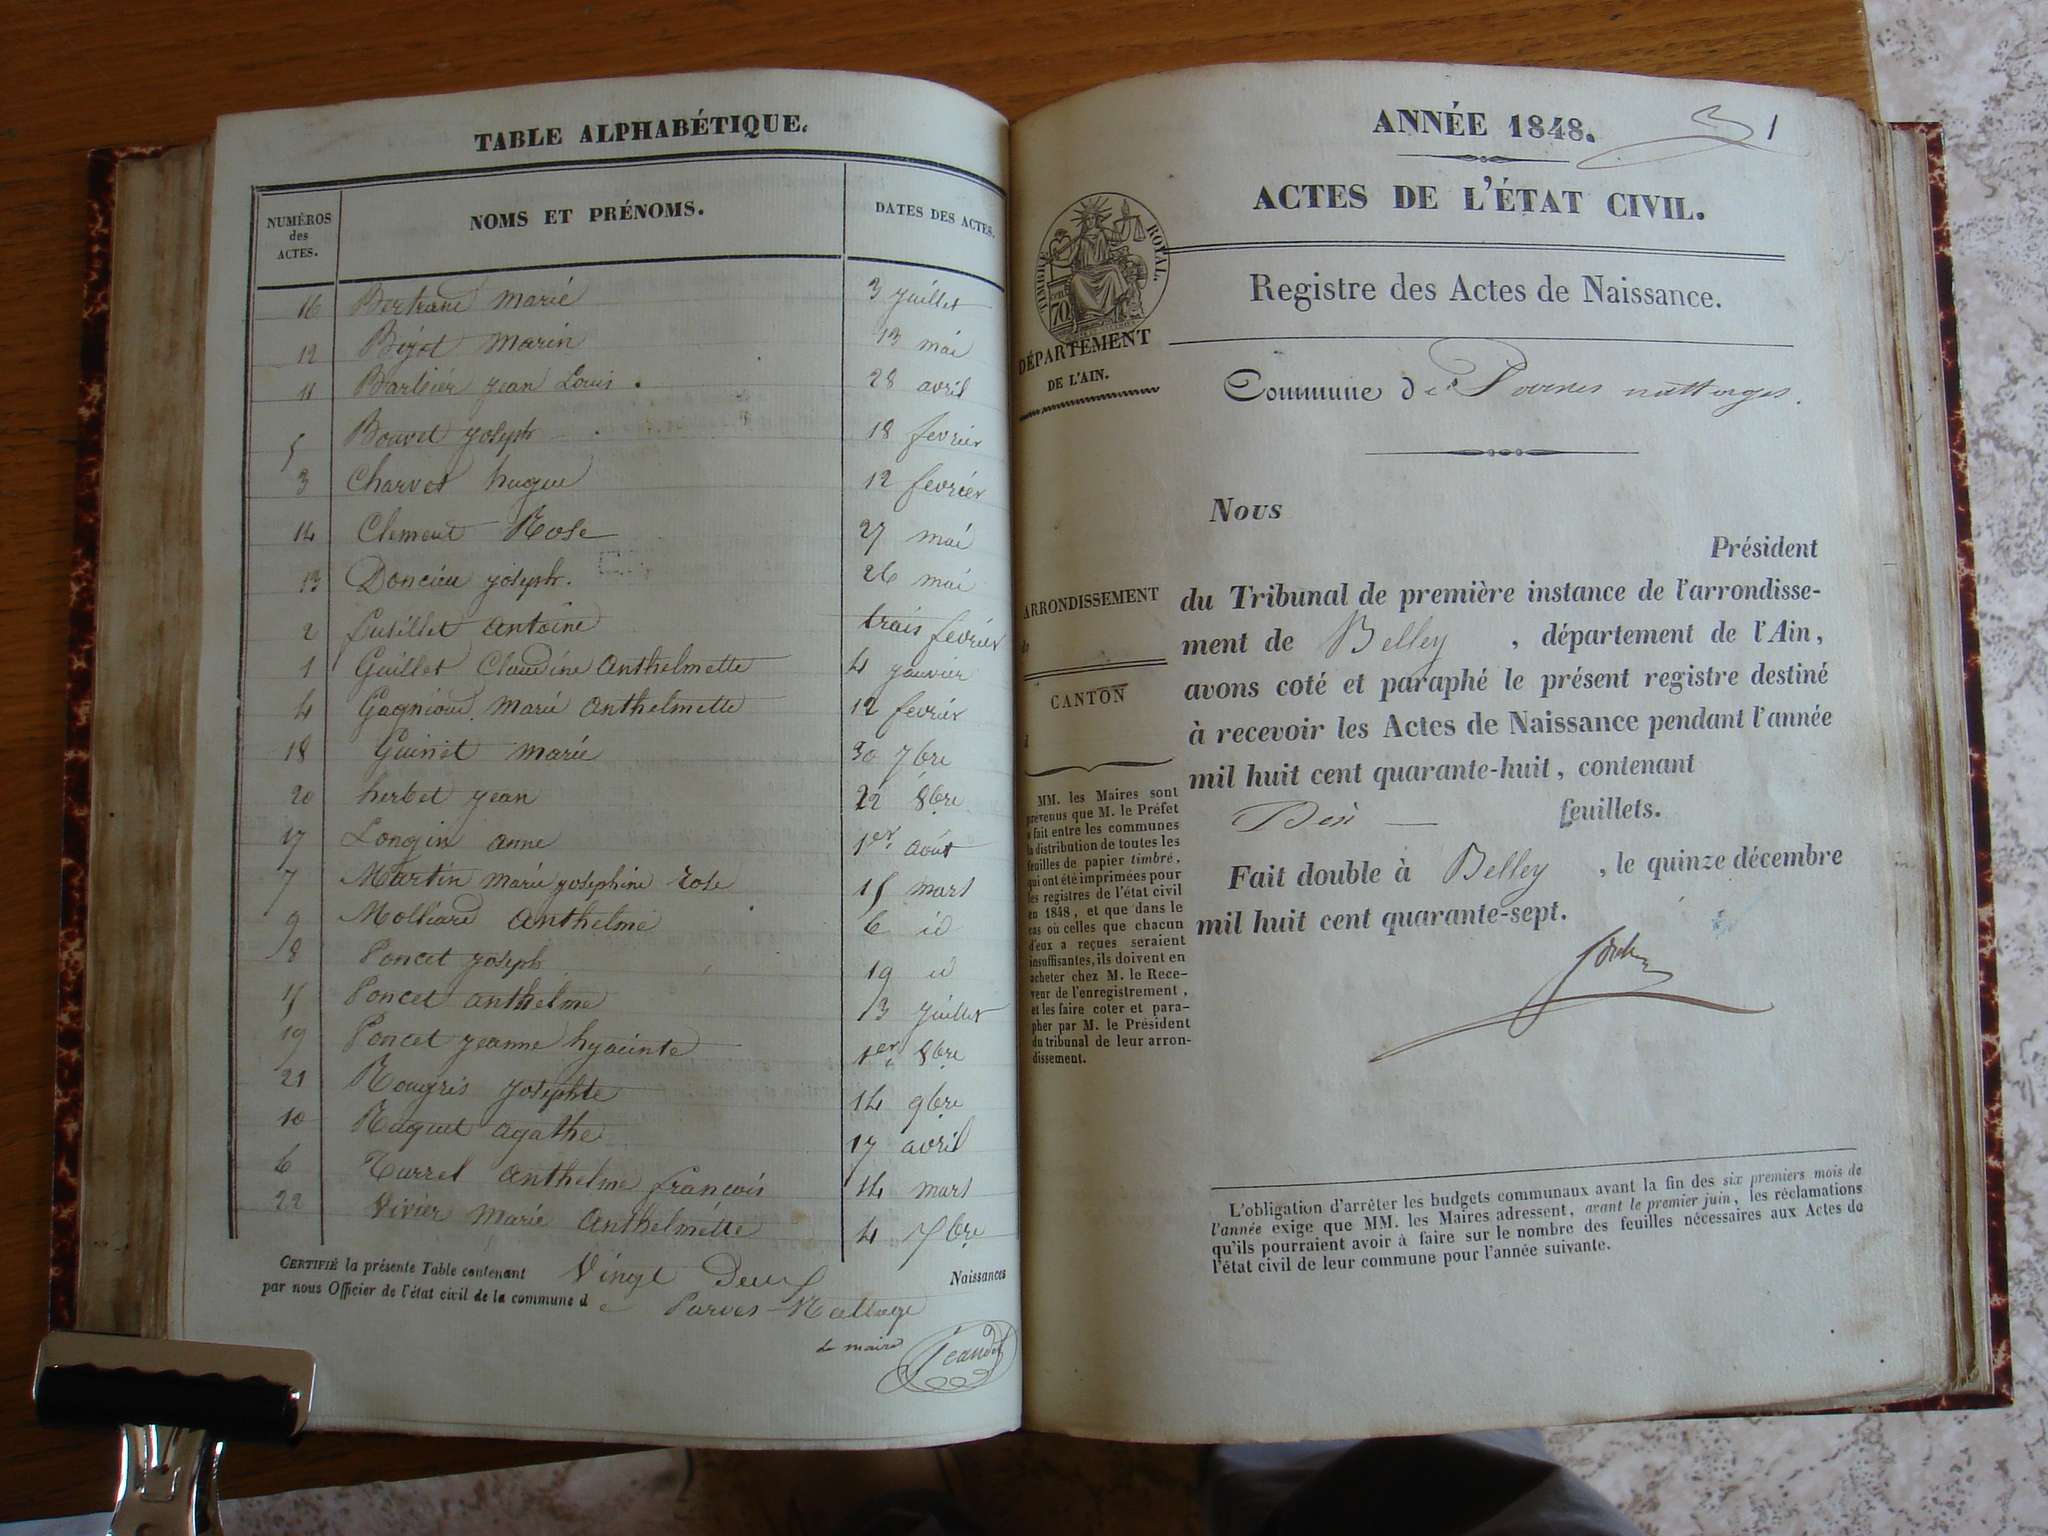 TABLE ALPHABÉTIQUE.
NUMÉROS des ACTES. NOMS ET PRÉNOMS. DATES DES ACTES.
16 Bertrand Marie 3 juillet
12 Bizot Marin 13 mai
11 Barbier jean Louis. 28 avril
5 Bouvet joseph 18 fevrier
3 Charvet hugue 12 fevrier
14 Clement Rose 27 mai
13 Doncieu joseph. 26 mai
2 antoine trais fevrier
1 Guillet Claudine anthelmette 4 janvier
4 Gagnioud Marie anthelmette 12 fevrier
18 Guinet marie 30 7bre
20 herbet jean 22 8bre
17 Longin anne 1er août
7 Martin marie josephine rose 15 mars
9 Molliard anthelme 6 id
8 Poncet joseph 19 id
15 Poncet anthelme 3 juillet
19 Poncet jeanne hyacinte 1er 8bre
21 Rougris josephte 14 9bre
10 Raquet agathe 17 avril
6 Turrel anthelme francois 14 mars
22 Vivier Marie anthelmette 4 Xbre
CERTIFIÉ la présente Table contenant Vingt Deux Naissances
par nous Officier de l'état civil de la commune de Parves-Nattage
le maire
ANNÉE 1848. 1
ACTES DE L'ÉTAT CIVIL.
TIMBRE ROYAL.
70
Registre des Actes de Naissance.
DÉPARTEMENT
DE L'AIN.
Commune de Parves nattages.
Nous
Président
du Tribunal de première instance de l'arrondisse-
ment de Belley, département de l'Ain,
avons coté et paraphé le présent registre destiné
à recevoir les Actes de Naissance pendant l'année
mil huit cent quarante-huit, contenant
Dix feuillets.
Fait double à Belley, le quinze décembre
mil huit cent quarante-sept.
ARRONDISSEMENT
CANTON
MM. les Maires sont
prévenus que M. le Préfet
a fait entre les communes
la distribution de toutes les
feuilles de papier timbré,
qui ont été imprimées pour
les registres de l'état civil
en 1848, et que dans le
cas où celles que chacun
d'eux a reçues seraient
insuffisantes, ils doivent en
acheter chez M. le Rece-
veur de l'enregistrement,
et les faire coter et para-
pher par M. le Président
du tribunal de leur arron-
dissement.
L'obligation d'arrêter les budgets communaux avant la fin des six premiers mois de
l'année exige que MM. les Maires adressent, avant le premier juin, les réclamations
qu'ils pourraient avoir à faire sur le nombre des feuilles nécessaires aux Actes de
l'état civil de leur commune pour l'année suivante.